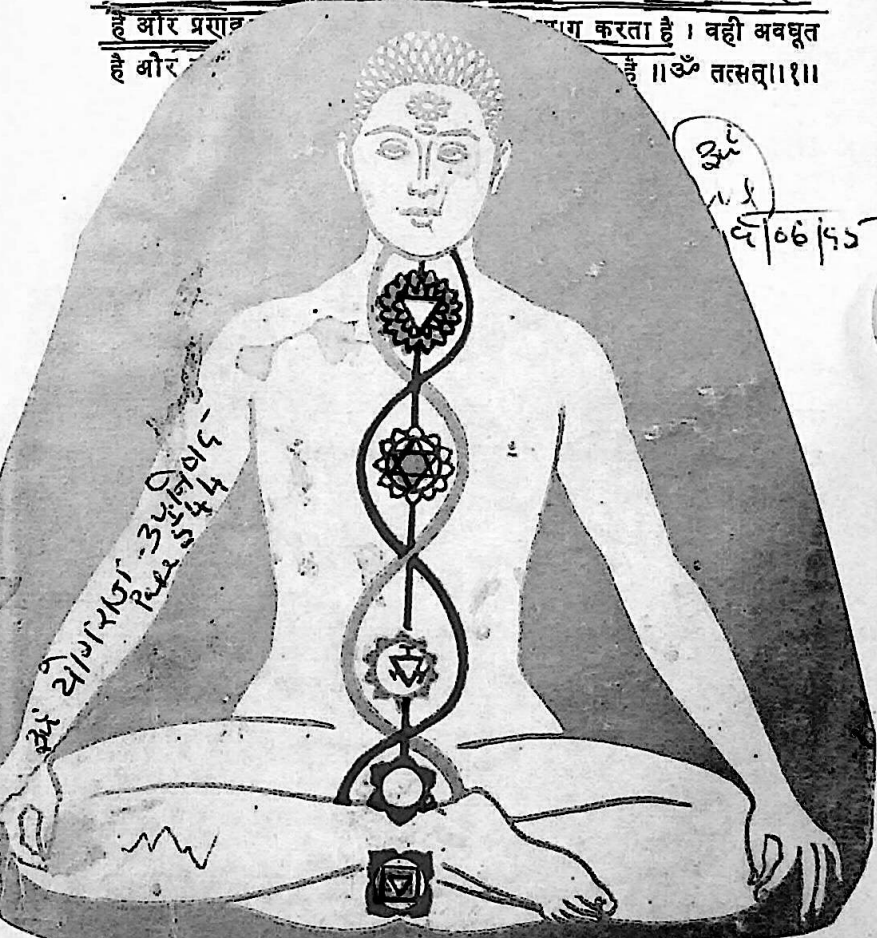 है और प्रणव
करता है । वही अवधूत
है और
है ॥ॐ तत्सत्॥१॥
ॐ
६|०६|९५
ॐ योगराज-उपनिषद
Page 544